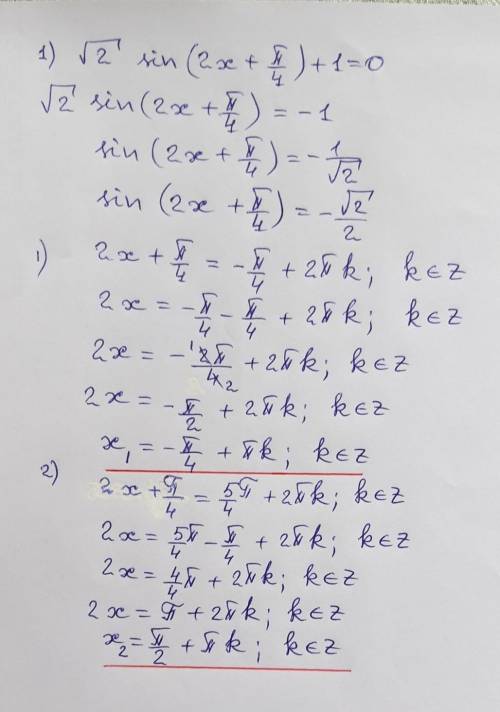 1) √2 sin(2x + π/4) + 1 = 0
√2 sin(2x + π/4) = -1
sin(2x + π/4) = -1/√2
sin(2x + π/4) = -√2/2
1) 2x + π/4 = -π/4 + 2πk; k∈Z
2x = -π/4 - π/4 + 2πk; k∈Z
2x = -¹2π/4₂ + 2πk; k∈Z
2x = -π/2 + 2πk; k∈Z
x₁ = -π/4 + πk; k∈Z
2) 2x + π/4 = 5/4 π + 2πk; k∈Z
2x = 5π/4 - π/4 + 2πk; k∈Z
2x = 4/4 π + 2πk; k∈Z
2x = π + 2πk; k∈Z
x₂ = π/2 + πk; k∈Z